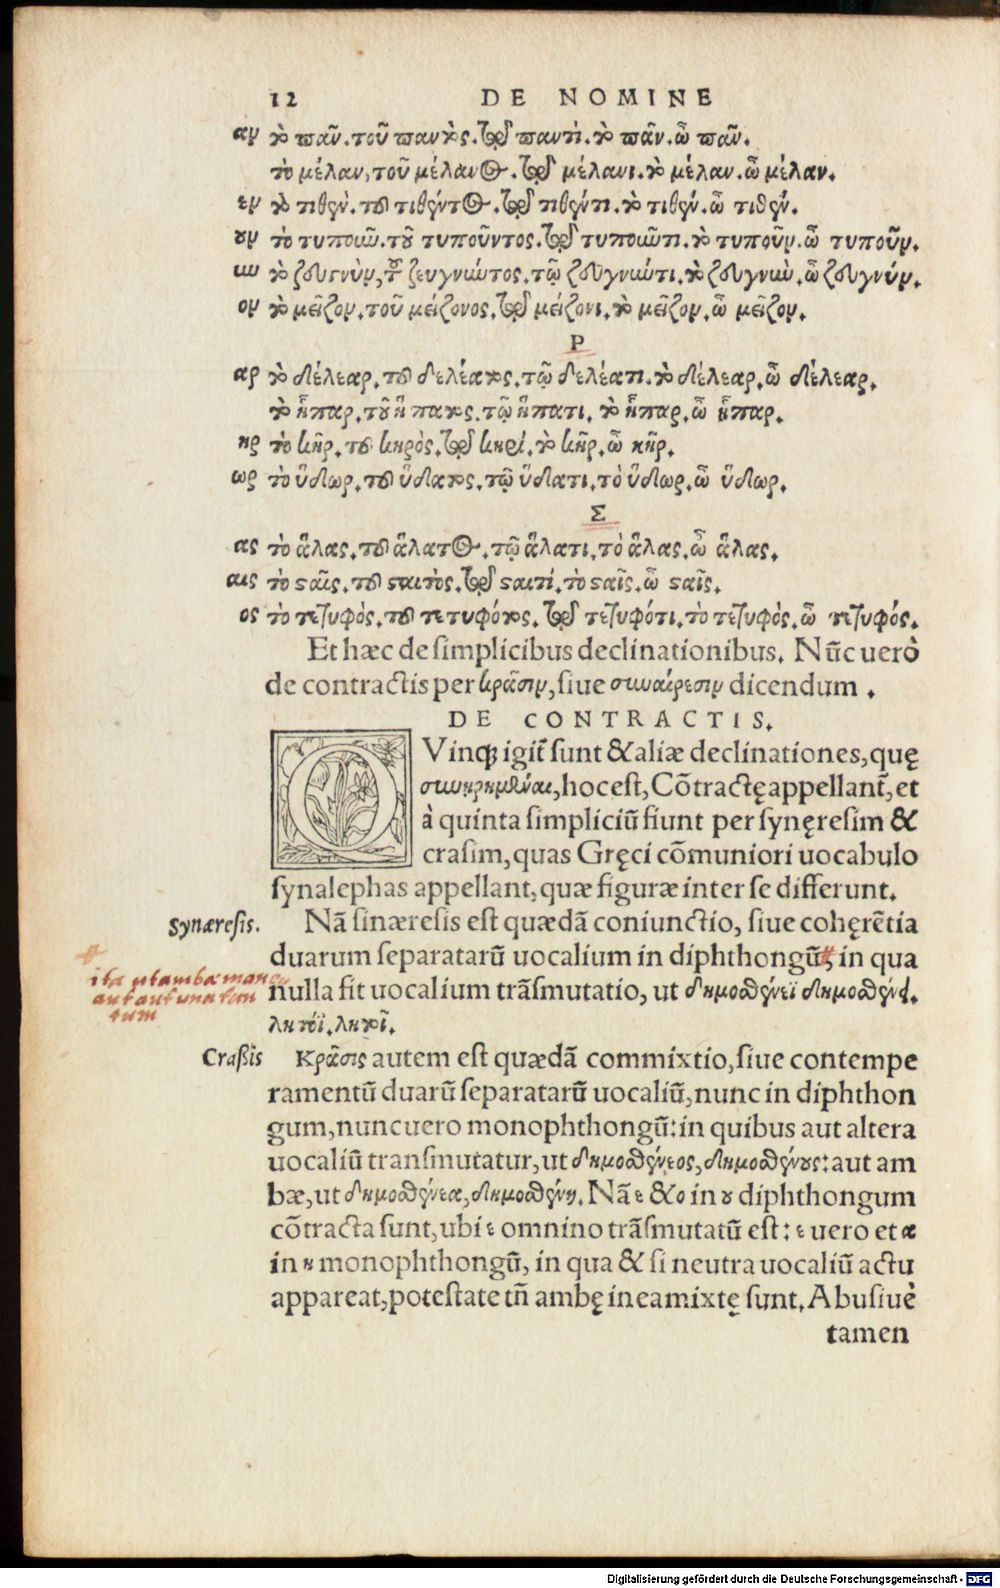 12 DE NOMINE
αν τὸ πᾶν. τοῦ παντός. τῷ παντί. τὸ πᾶν. ὦ πᾶν.
τὸ μέλαν, τοῦ μέλανος. τῷ μέλανι. τὸ μέλαν. ὦ μέλαν.
εν τὸ τιθέν. τοῦ τιθέντος. τῷ τιθέντι. τὸ τιθέν. ὦ τιθέν.
ουν τὸ τυποῦν. τοῦ τυποῦντος. τῷ τυποῦντι. τὸ τυποῦν. ὦ τυποῦν.
υν τὸ ζευγνὺν, τοῦ ζευγνύντος. τῷ ζευγνύντι. τὸ ζευγνὺν. ὦ ζευγνύν.
ον τὸ μεῖζον. τοῦ μείζονος. τῷ μείζονι. τὸ μεῖζον. ὦ μεῖζον.
Ρ
αρ τὸ δέλεαρ. τοῦ δελέατος. τῷ δελέατι. τὸ δέλεαρ. ὦ δέλεαρ.
τὸ ἧπαρ. τοῦ ἥπατος. τῷ ἥπατι. τὸ ἧπαρ. ὦ ἧπαρ.
ηρ τὸ κῆρ. τοῦ κηρὸς. τῷ κηρί. τὸ κῆρ. ὦ κῆρ.
ωρ τὸ ὕδωρ. τοῦ ὕδατος. τῷ ὕδατι. τὸ ὕδωρ. ὦ ὕδωρ.
Σ
ας τὸ ἅλας. τοῦ ἅλατος. τῷ ἅλατι. τὸ ἅλας. ὦ ἅλας.
αις τὸ σταῖς. τοῦ σταιτὸς. τῷ σταιτί. τὸ σταῖς. ὦ σταῖς.
ος τὸ τετυφὸς. τοῦ τετυφότος. τῷ τετυφότι. τὸ τετυφὸς. ὦ τετυφός.
Et hæc de simplicibus declinationibus. Nūc uerò
de contractis per κρᾶσιν, siue συναίρεσιν dicendum.
DE CONTRACTIS.
QVinqꝫ igit̃ sunt & aliæ declinationes, quę
συνῃρημέναι, hoc est, Cōtractę appellant̃, et
à quinta simpliciū fiunt per synęresim &
crasim, quas Gręci cōmuniori uocabulo
synalephas appellant, quæ figuræ inter se differunt.
Synæresis. Nā sinæresis est quædā coniunctio, siue cohęrẽtia
duarum separatarū uocalium in diphthongū, in qua
ita ut ambæ mane
aut aut una tan
tum
nulla fit uocalium trãsmutatio, ut δημοσθένεϊ δημοσθένει.
λητόϊ. λητοῖ.
Crasis Κρᾶσις autem est quædā commixtio, siue contempe
ramentū duarū separatarū uocaliū, nunc in diphthon
gum, nunc uero monophthongū: in quibus aut altera
uocaliū transmutatur, ut δημοσθένεος, δημοσθένους: aut am
bæ, ut δημοσθένεα, δημοσθένη. Nā ε & ο in ου diphthongum
cōtracta sunt, ubi ε omnino trãsmutatū est: ε uero et α
in η monophthongū, in qua & si neutra uocaliū actu
appareat, potestate tñ ambę in ea mixtę sunt. Abusiuè
tamen
Digitalisierung gefördert durch die Deutsche Forschungsgemeinschaft - DFG